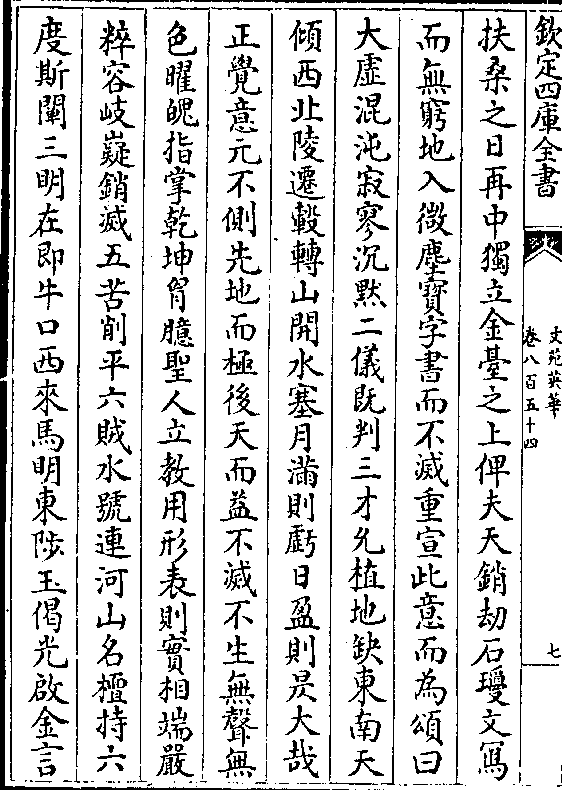 欽定四庫全書
文苑英華
卷八百五十四
七
扶桑之日再中獨立金臺之上俾夫天銷劫石瓊文冩
而無窮地入微塵寳字書而不滅重宣此意而為頌曰
大虛混沌寂寥沉黙二儀既判三才允植地缺東南天
傾西北陵遷轂轉山開水塞月滿則虧日盈則昃大哉
正覺意元不側先地而極後天而益不滅不生無聲無
色曜魄指掌乾坤胷臆聖人立教用形表則實相端嚴
粹容岐嶷銷滅五苦削平六賊水號連河山名檀持六
度斯闡三明在即牛口西來馬明東陟玉偈光啟金言